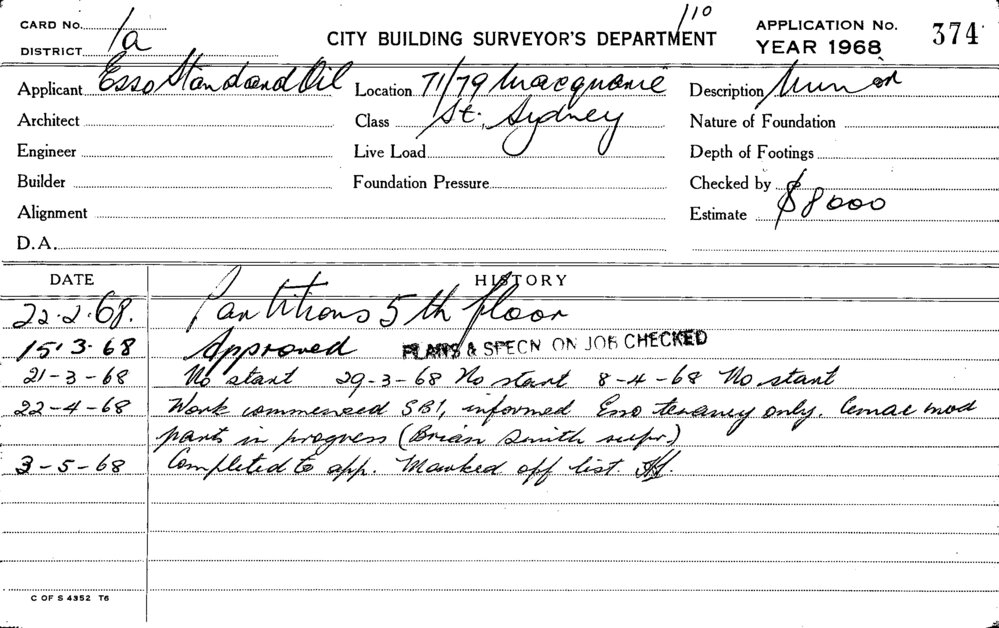 CARD No. 1a
CITY BUILDING SURVEYOR'S DEPARTMENT
110
APPLICATION No. 374
YEAR 1968
DISTRICT
Applicant Esso Standard Oil
Location 71/79 Macquarie
Description
Architect
Class St. Sydney
Nature of Foundation
Engineer
Live Load
Depth of Footings
Builder
Foundation Pressure
Checked by
Alignment
Estimate $8000
D.A.
DATE
HISTORY
22.2.68. Partitions 5th floor
15.3.68 Approved PLANS & SPECN ON JOB CHECKED
21-3-68 No start 29-3-68 No start 8-4-68 No start
22-4-68 Work commenced SB1, informed Esso tenancy only. Cemac mod
parts in progress (Brian Smith supr.)
3-5-68 Completed to app. Marked off list.
C OF S 4352 T6